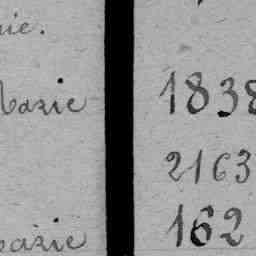 rie.
Marie 1838
2163
Marie 162